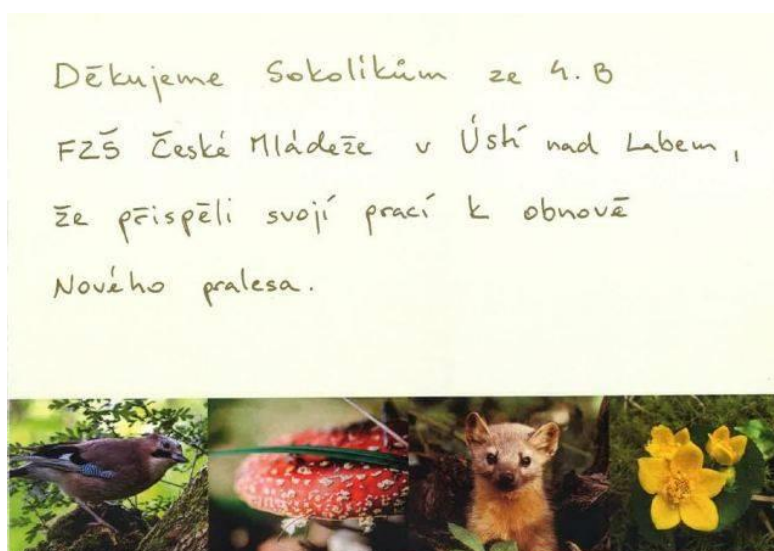 Děkujeme Sokolíkům ze 4.B
FZŠ České Mládeže v Ústí nad Labem,
že přispěli svojí prací k obnově
Nového pralesa.